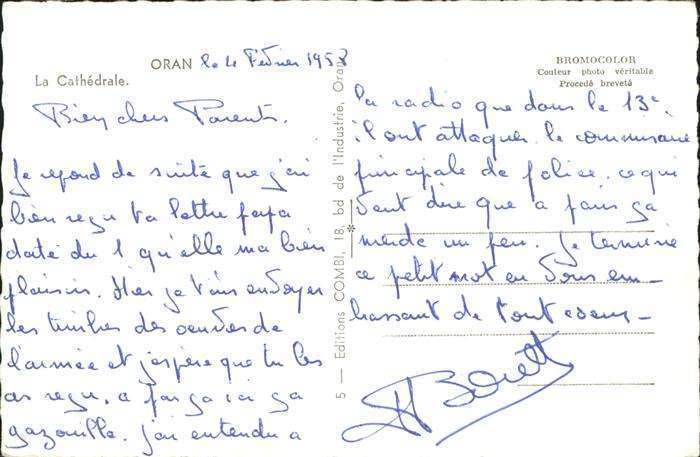 ORAN le 4 Février 1958
La Cathédrale.
BROMOCOLOR
Couleur photo véritable
Procédé breveté
Bien chers Parents.
Je repond de suite que j'ai
bien reçu ta lettre papa
daté du 1 qu'elle ma bien
plaisir. Hier je t'ais envoyer
les timbres des oeuvres de
l'armée et j'espère que tu les
as reçu, a par ça ici ça
gazouille. j'ai entendu a
5 — Editions COMBI, 18, bd de l'Industrie, Oran
la radio que dans le 13e.
il ont attaquer le commissaire
principale de police. ce qui
veut dire que a paris ça
merde un peu. Je termine
ce petit mot en vous em-
brassant de tout coeur —